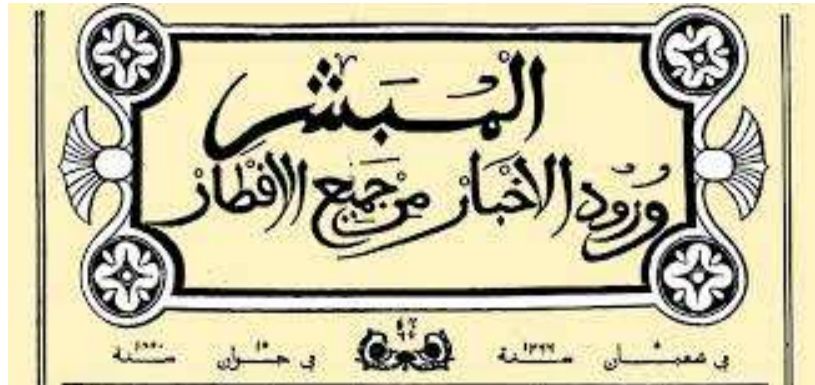 المبشر
ورود الاخبار من جميع الاقطار
في شعبان سنة في جوان سنة